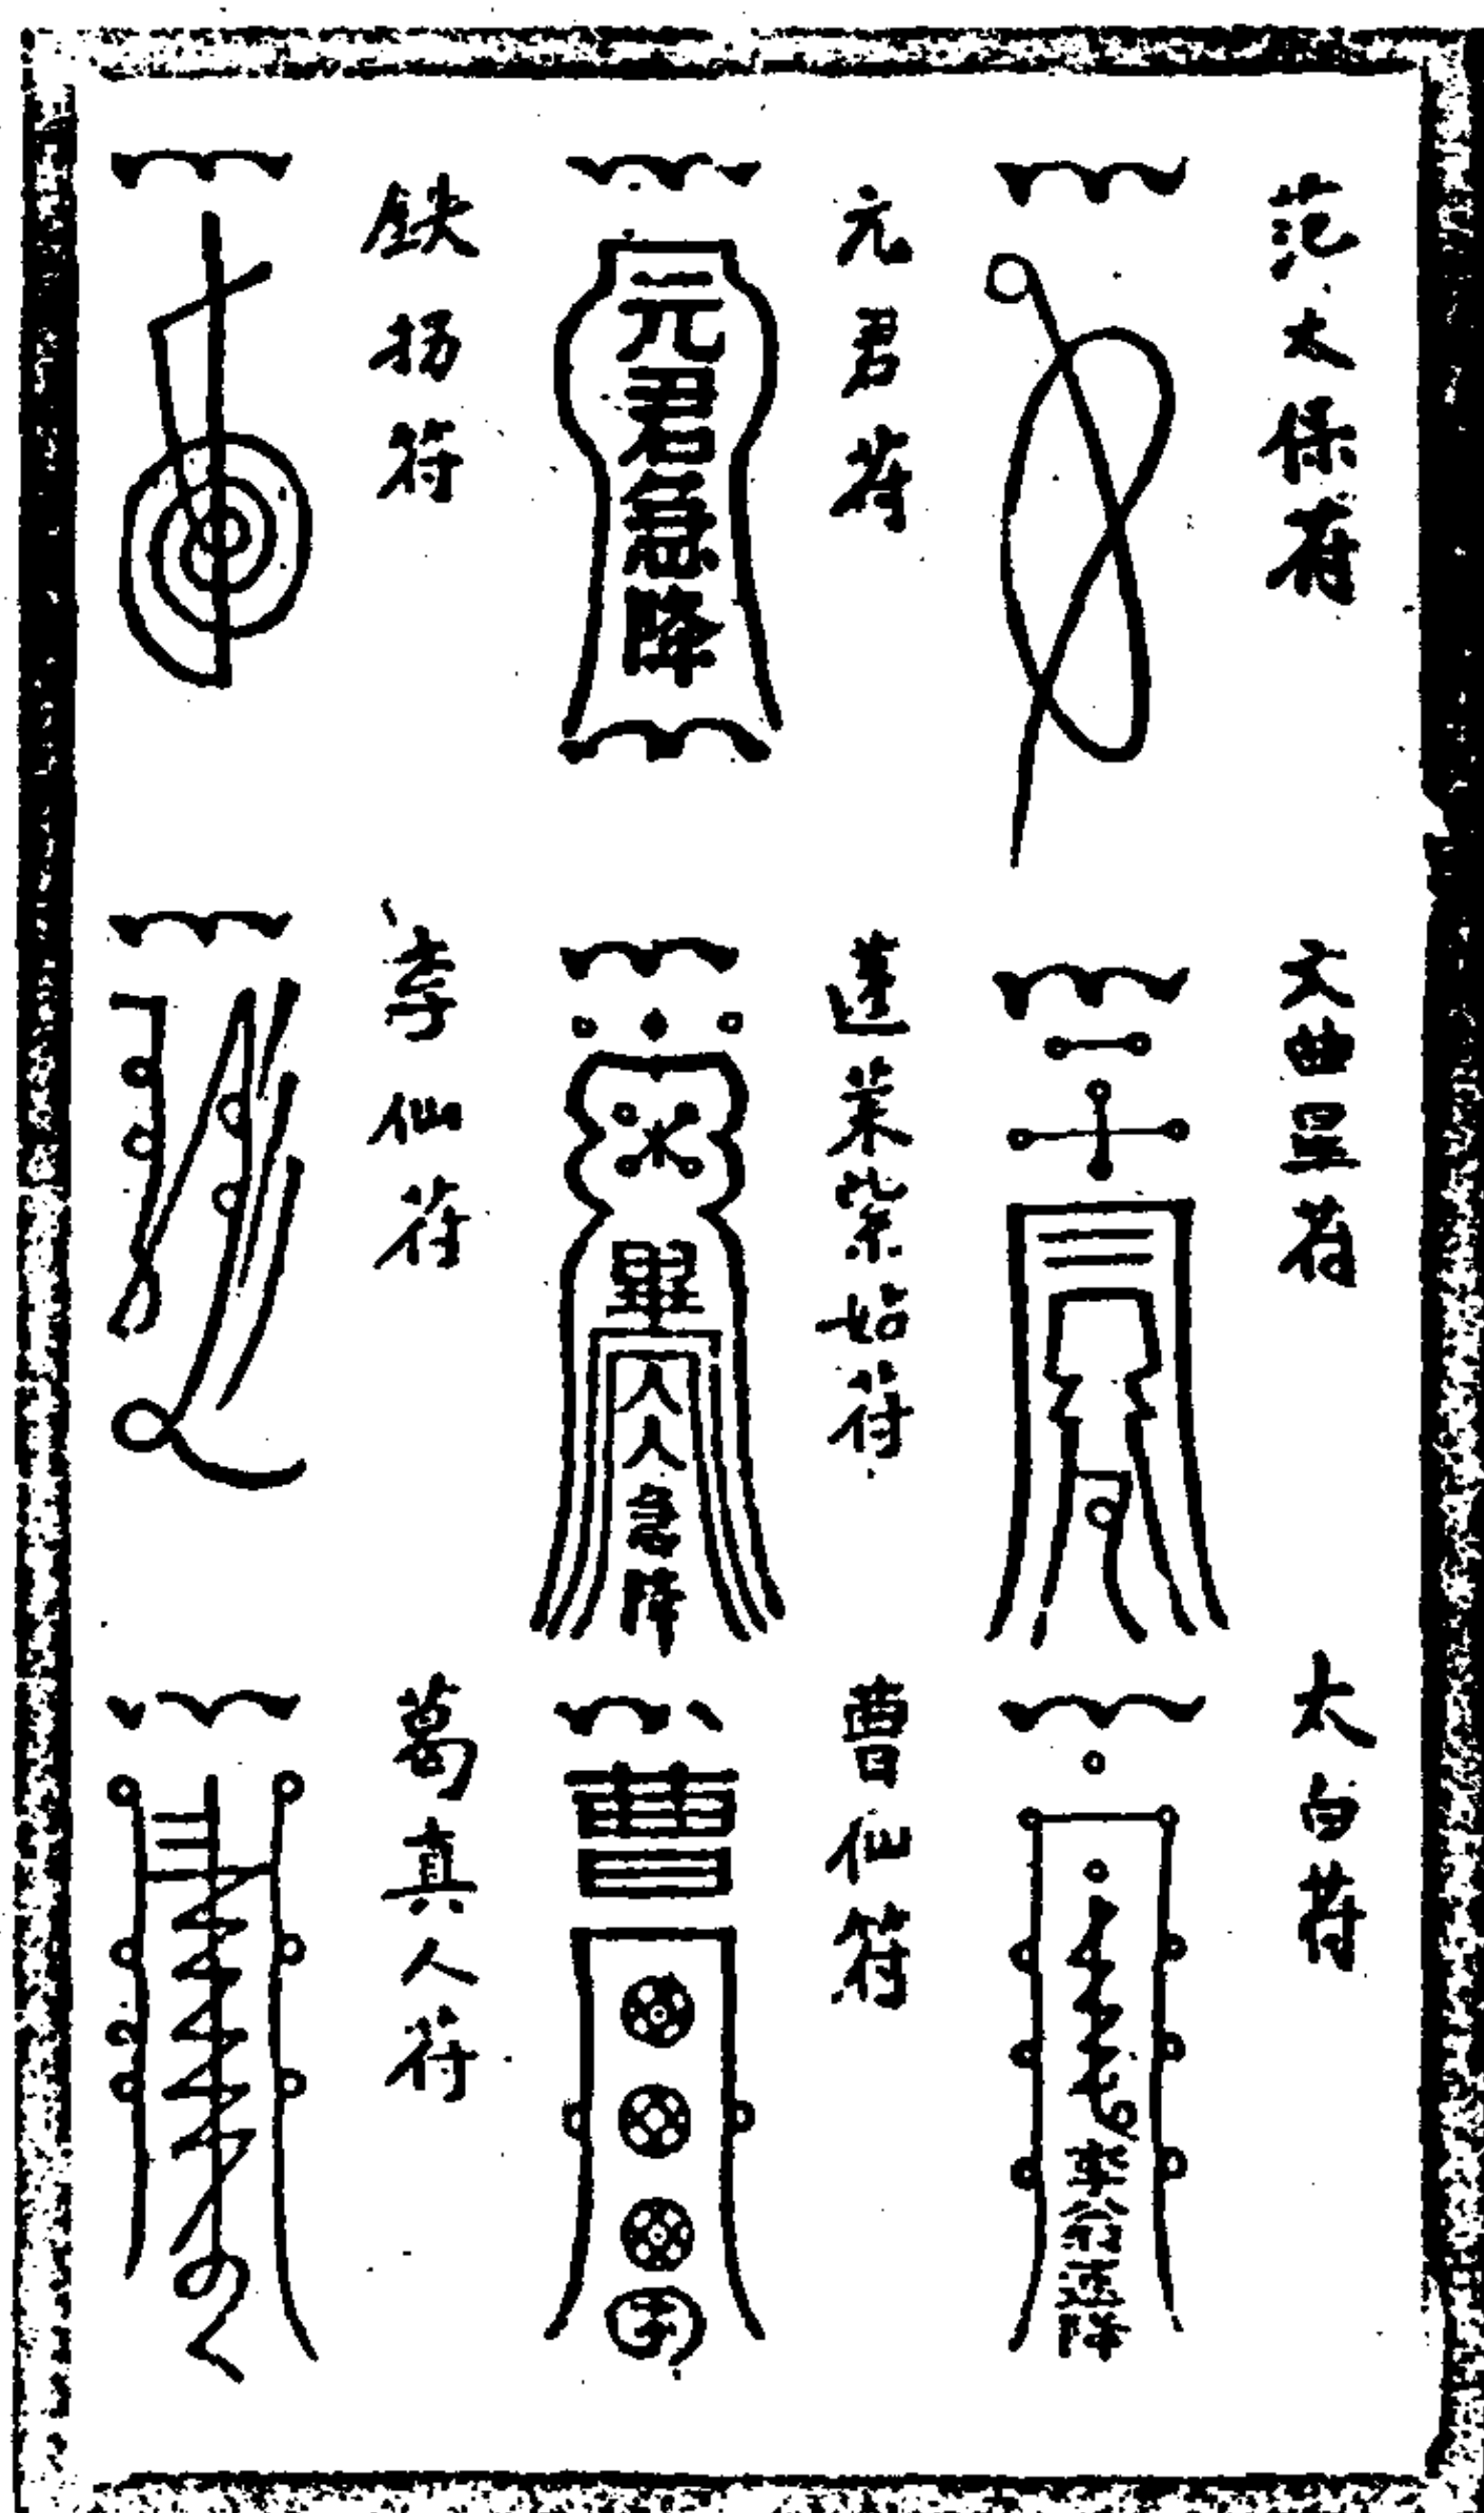 范太保符
文曲星符
太白符
李翁速降
元君符
元君急降
蓬莱紫姑符
急降
曹仙符
曹
鉄拐符
李仙符
葛真人符